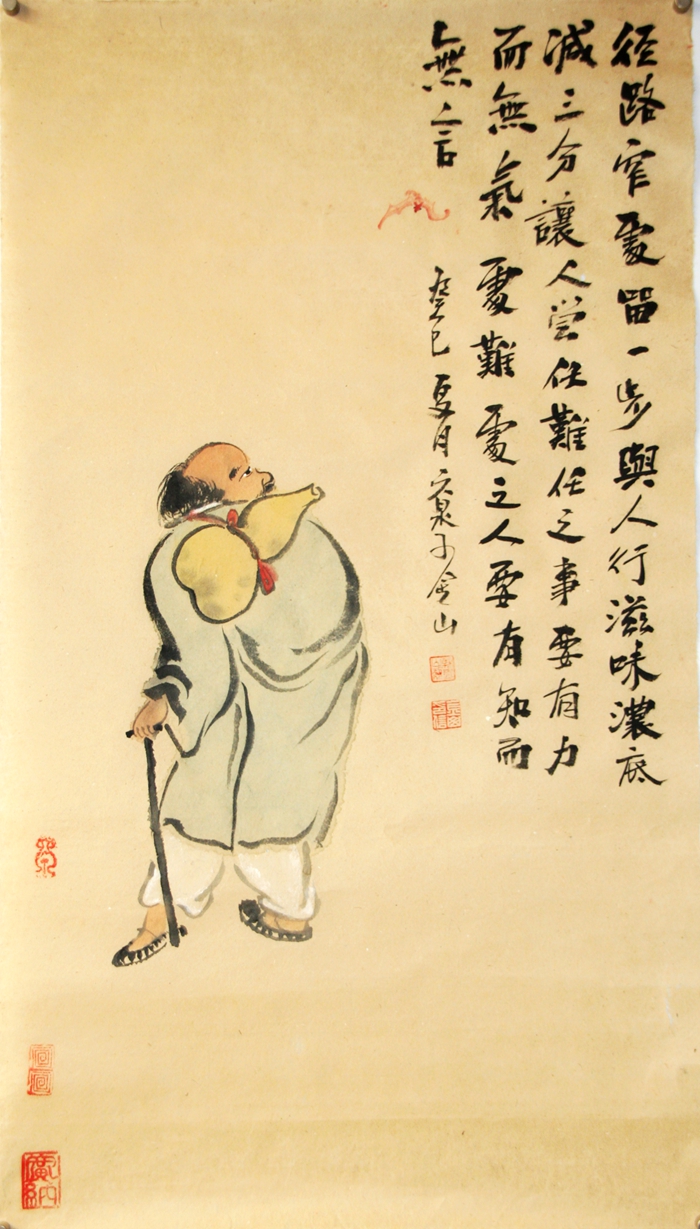 径路窄處留一步與人行滋味濃底
减三分讓人尝任難任之事要有力
而無氣處難處之人要有知而
無言
癸巳夏月泉子金山
廣納